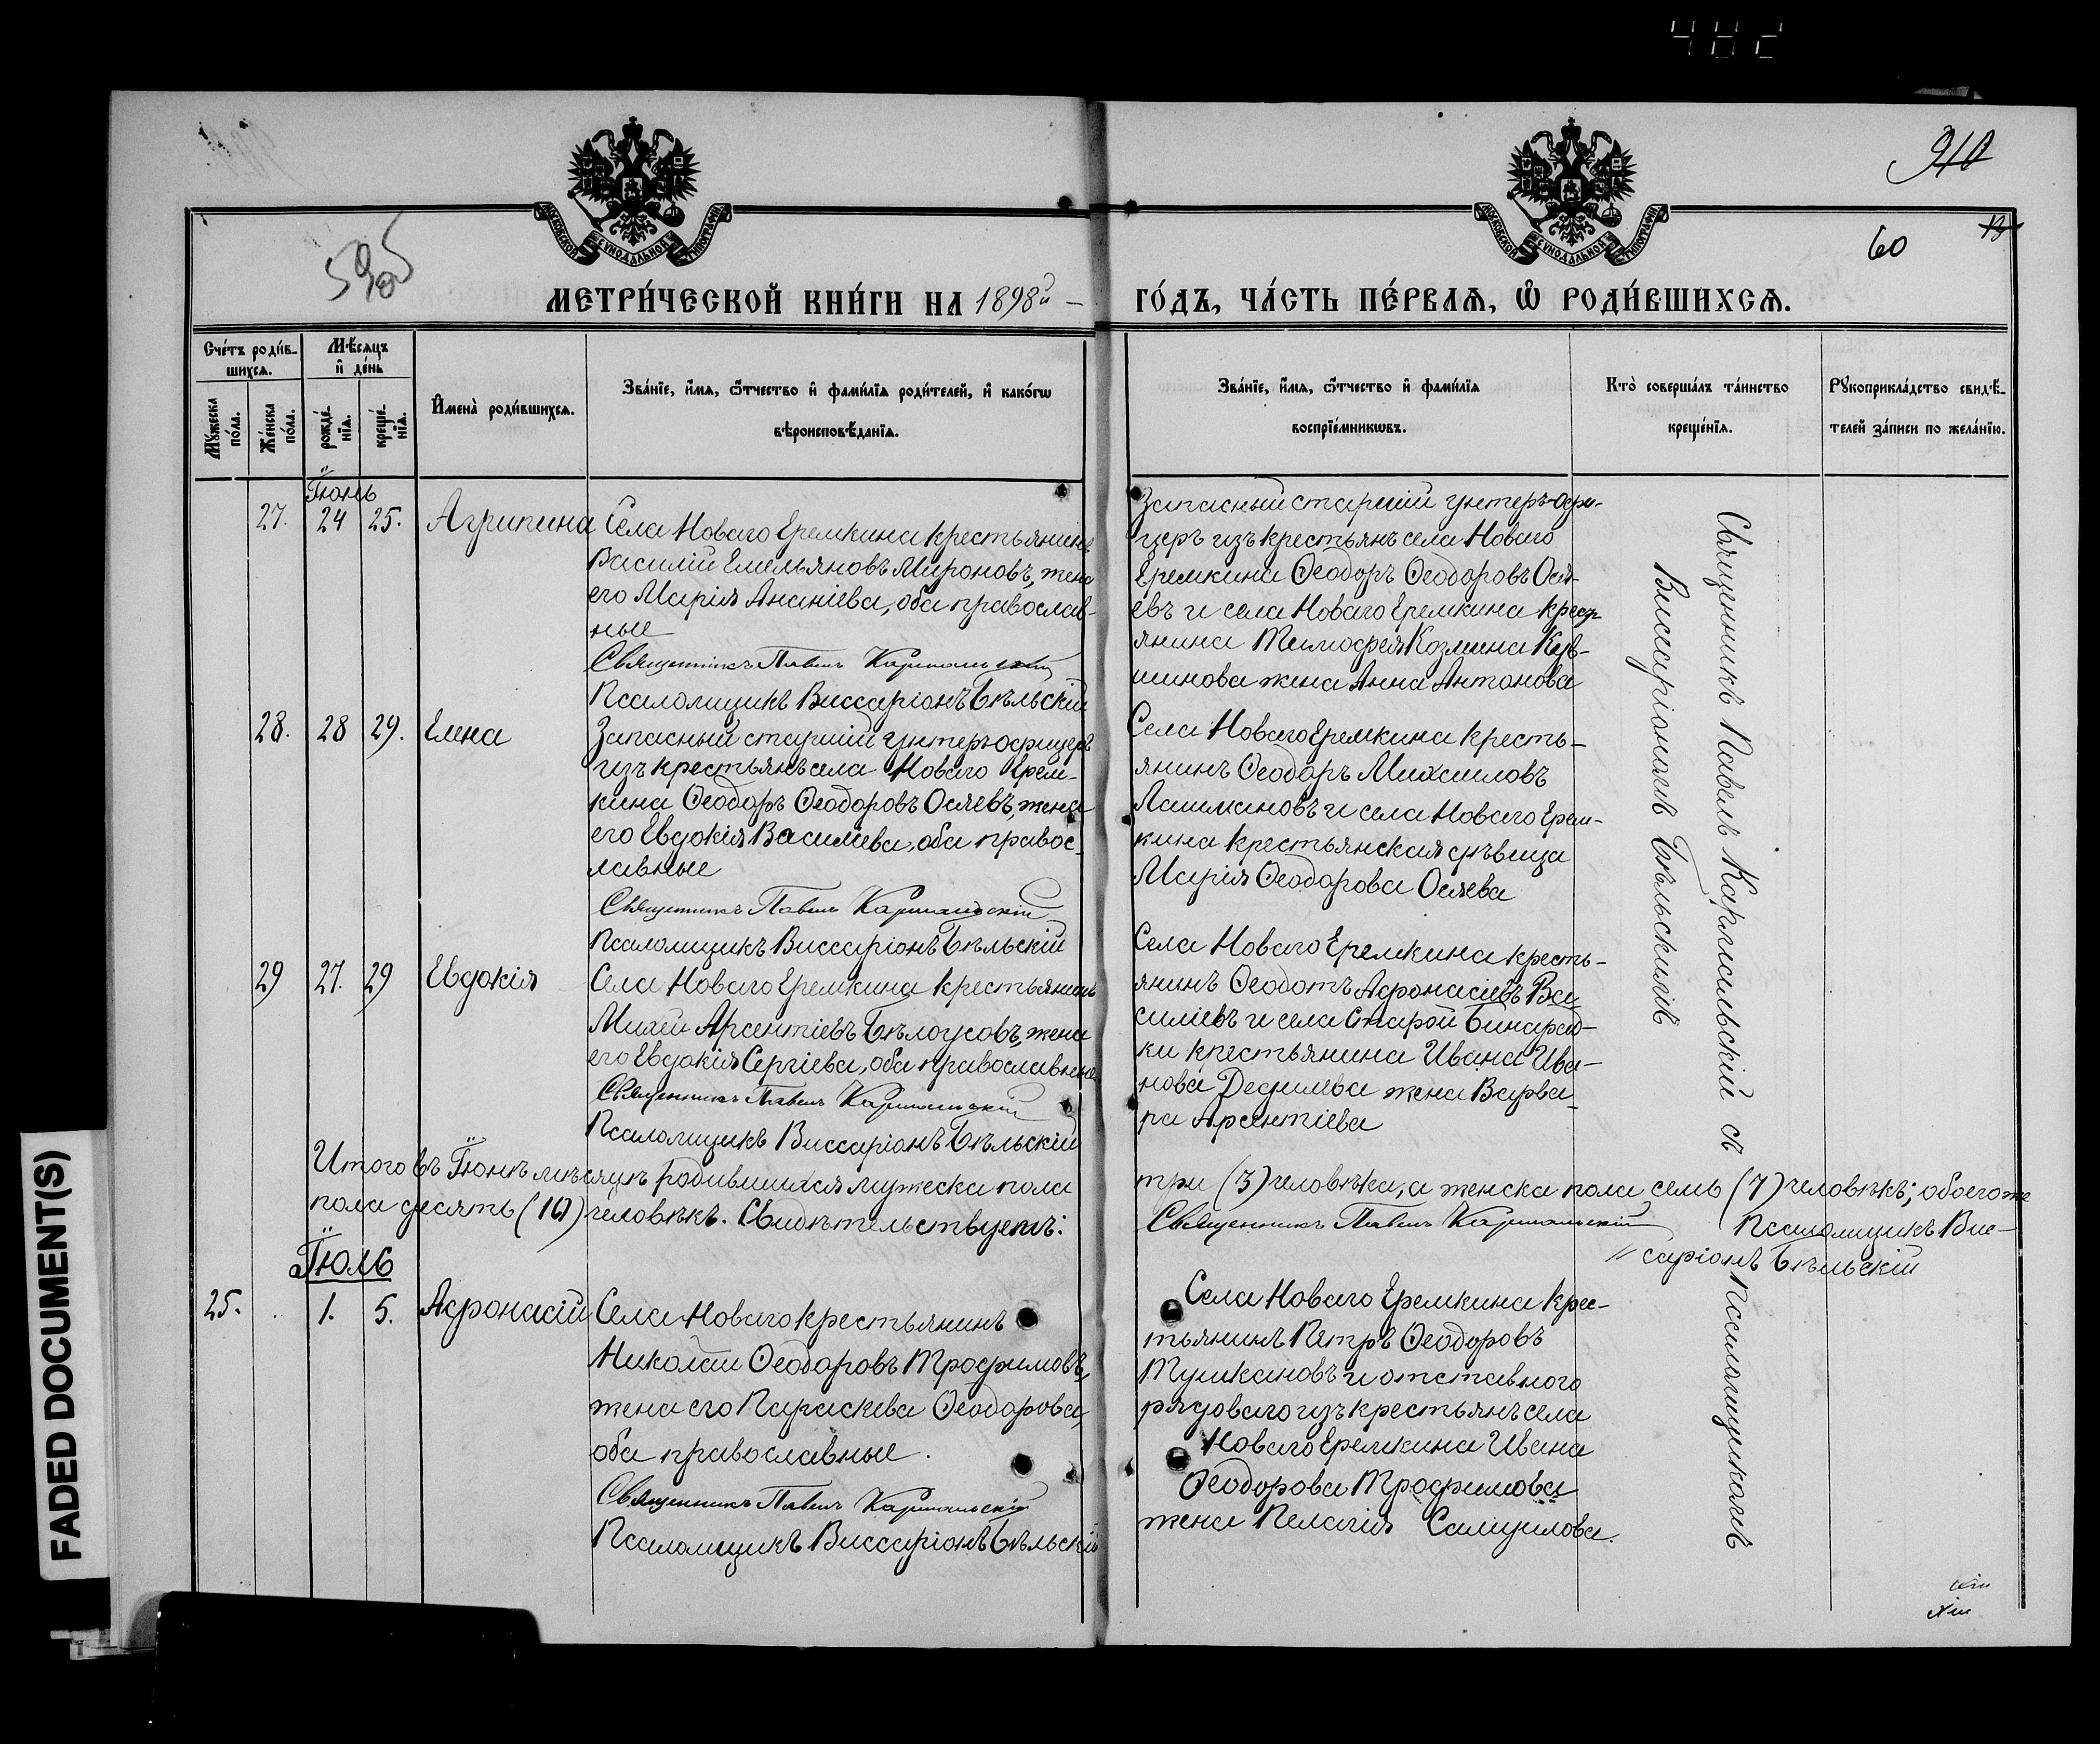 910
60
МОСКОВСКОЙ СѴНОДАЛЬНОЙ ТИПОГРАФІИ
МОСКОВСКОЙ СѴНОДАЛЬНОЙ ТИПОГРАФІИ
МЕТРИ́ЧЕСКОЙ КНИ́ГИ НА 1898й –
ГО́ДЪ, ЧА́СТЬ ПЕ́РВАѦ, Ѽ РОДИ́ВШИХСѦ.
Сче́тъ роди́в-
шихсѧ.
Мꙋ́жеска по́ла.
Же́нска по́ла.
Мѣ́сѧцъ
и҆ де́нь
рожде́-
нїѧ.
креще́-
нїѧ.
И҆мена̀ роди́вшихсѧ.
Зва́нїе, и҆́мѧ, ѻ҆́тчество и҆ фами́лїѧ роди́телей, и҆ како́гѡ
вѣроисповѣ́данїѧ.
Зва́нїе, и҆́мѧ, ѻ҆́тчество и҆ фами́лїѧ
воспрїе́мникѡвъ.
Кто̀ соверша́лъ та́инство
креще́нїѧ.
Рꙋкоприкла́дство свидѣ́-
телей за́писи по жела́нїю.
Іюнь
27. 24 25. Агрипина
Села Новаго Еремкина крестьянинъ
Василій Емельяновъ Мироновъ, жена
его Марія Ананіева, оба православ-
ные
Священникъ Павелъ Кармальскій
Псаломщикъ Виссаріонъ Бѣльскій
Запасный старшій унтеръ-офи-
церъ изъ крестьянъ села Новаго
Еремкина Ѳеодоръ Ѳеодоровъ Ося-
евъ и села Новаго Еремкина крес-
янина Тимофея Козмина Кув-
шинова жена Анна Антонова
28. 28 29. Елена
Запасный старшій унтеръ офицеръ
изъ крестьянъ села Новаго Ерем-
кина Ѳеодоръ Ѳеодоровъ Осяевъ, жена
его Евдокія Василіева, оба правос-
лавные
Священникъ Павелъ Кармальскій
Псаломщикъ Виссаріонъ Бѣльскій
Села Новаго Еремкина кресть-
янинъ Ѳеодоръ Михаиловъ
Лашмановъ и села Новаго Ерем-
кина крестьянская дѣвица
Марія Ѳеодорова Осяева
29 27. 29 Евдокія
Села Новаго Еремкина крестьянинъ
Михей Арсентіевъ Бѣлоусовъ, жена
его Евдокія Сергіева, оба православные
Священникъ Павелъ Кармальскій
Псаломщикъ Виссаріонъ Бѣльскій
Села Новаго Еремкина кресть-
янинъ Ѳеодотъ Афонасіевъ Ва-
силіевъ и села Старой Бинарад-
ки крестьянина Ивана Ива-
нова жена Варва-
ра Арсентіева
Священникъ Павелъ Кармальскій съ
Псаломщикомъ
Виссаріономъ Бѣльскимъ
Итого въ Іюнѣ мѣсяцѣ родившихся мужеска пола
три (3) человѣка, а женска пола семь (7) человѣкъ; обоего же
пола десять (10) человѣкъ. Свидѣтельствуемъ:
Священникъ Павелъ Кармальскій
Псаломщикъ Вис-
саріонъ Бѣльскій
Іюль
25. 1. 5. Афонасій
Села Новаго крестьянинъ
Николай Ѳеодоровъ Трофимовъ,
жена его Параскева Ѳеодорова,
оба православные.
Священникъ Павелъ Кармальскій
Псаломщикъ Виссаріонъ Бѣльскій
Села Новаго Еремкина крес-
тьянинъ Петръ Ѳеодоровъ
Тушкановъ и отставного
рядоваго изъ крестьянъ села
Новаго Еремкина Ивана
Ѳеодорова Трофимова
жена Пелагія Самуилова.
FADED DOCUMENT(S)